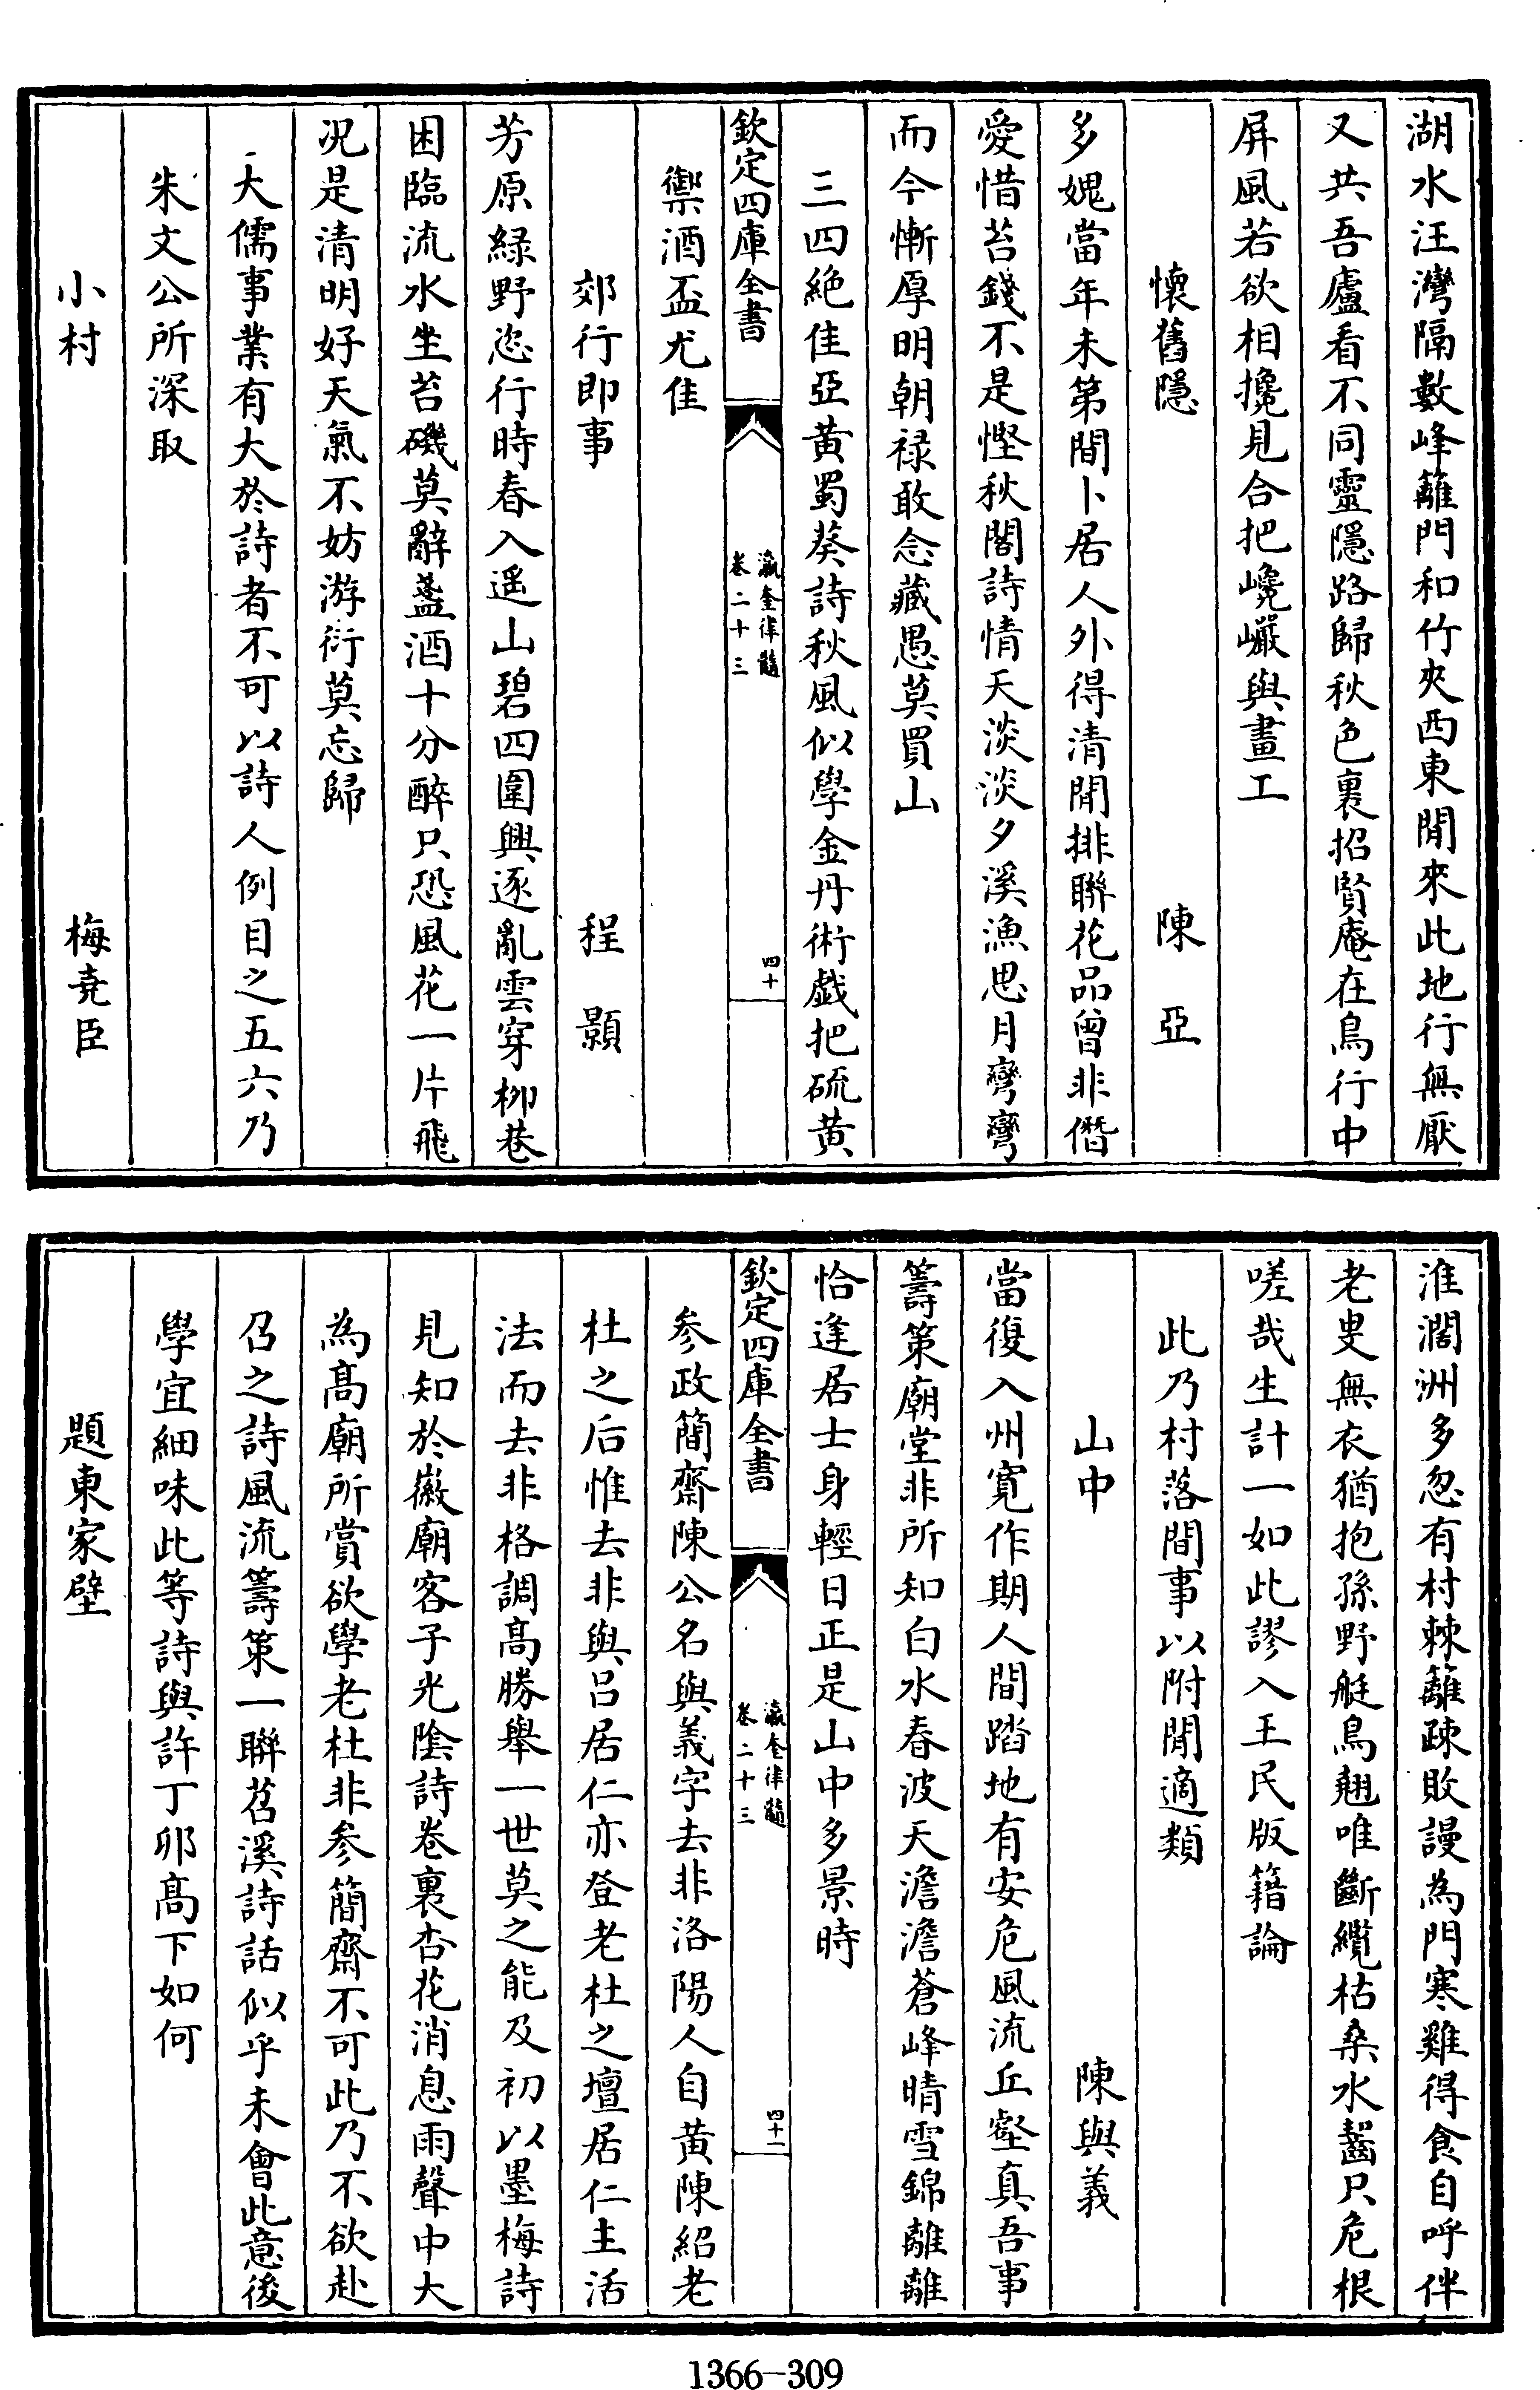 湖水汪灣隔數峰籬門和竹夾西東閒來此地行無厭
又共吾廬看不同靈隱路歸秋色裏招賢庵在鳥行中
屏風若欲相攙見合把巉巖與畫工
懷舊隱 陳亞
多媿當年未第間卜居人外得清閒排聯花品曾非僭
愛惜苔錢不是慳秋閣詩情天淡淡夕溪漁思月彎彎
而今慚厚明朝祿敢念藏愚莫買山
三四絕佳亞黄蜀葵詩秋風似學金丹術戯把硫黄
欽定四庫全書 瀛奎律髓 卷二十三 四十
禦酒盃尤佳
郊行即事 程顥
芳原緑野恣行時春入遥山碧四圍興逐亂雲穿柳巷
困臨流水坐苔磯莫辭盞酒十分醉只恐風花一片飛
况是清明好天氣不妨游衍莫忘歸
大儒事業有大於詩者不可以詩人例目之五六乃
朱文公所深取
小村 梅堯臣
淮濶洲多忽有村棘籬疎敗謾為門寒雞得食自呼伴
老叟無衣猶抱孫野艇鳥翹唯斷纜枯桑水齧只危根
嗟哉生計一如此謬入王民版籍論
此乃村落間事以附閒適類
山中 陳與義
當復入州寛作期人間踏地有安危風流丘壑真吾事
籌策廟堂非所知白水春波天澹澹蒼峰晴雪錦離離
恰逢居士身輕日正是山中多景時
欽定四庫全書 瀛奎律髓 卷二十三 四十一
參政簡齋陳公名與義字去非洛陽人自黄陳紹老
杜之后惟去非與吕居仁亦登老杜之壇居仁主活
法而去非格調髙勝舉一世莫之能及初以墨梅詩
見知於徽廟客子光陰詩卷裏杏花消息雨聲中大
為髙廟所賞欲學老杜非參簡齋不可此乃不欲赴
召之詩風流籌策一聯苕溪詩話似乎未會此意後
學宜細味此等詩與許丁卯髙下如何
題東家壁
1366-309